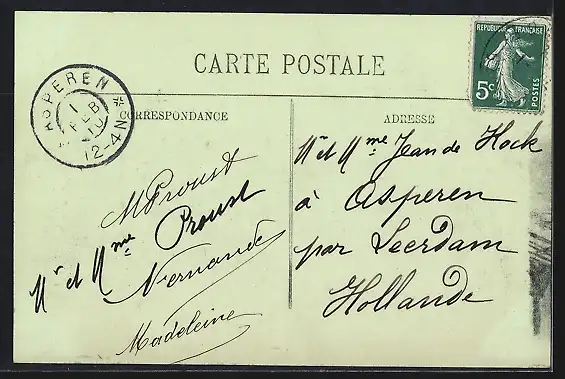 CARTE POSTALE
REPUBLIQUE FRANÇAISE
5c
POSTES
ASPEREN
1
FEB
10
12-4N
CORRESPONDANCE
M Proust
Mr et Mme Proust
Fernande
Madeleine
ADRESSE
Mr et Mme Jean de Hock
à Asperen
par Leerdam
Hollande